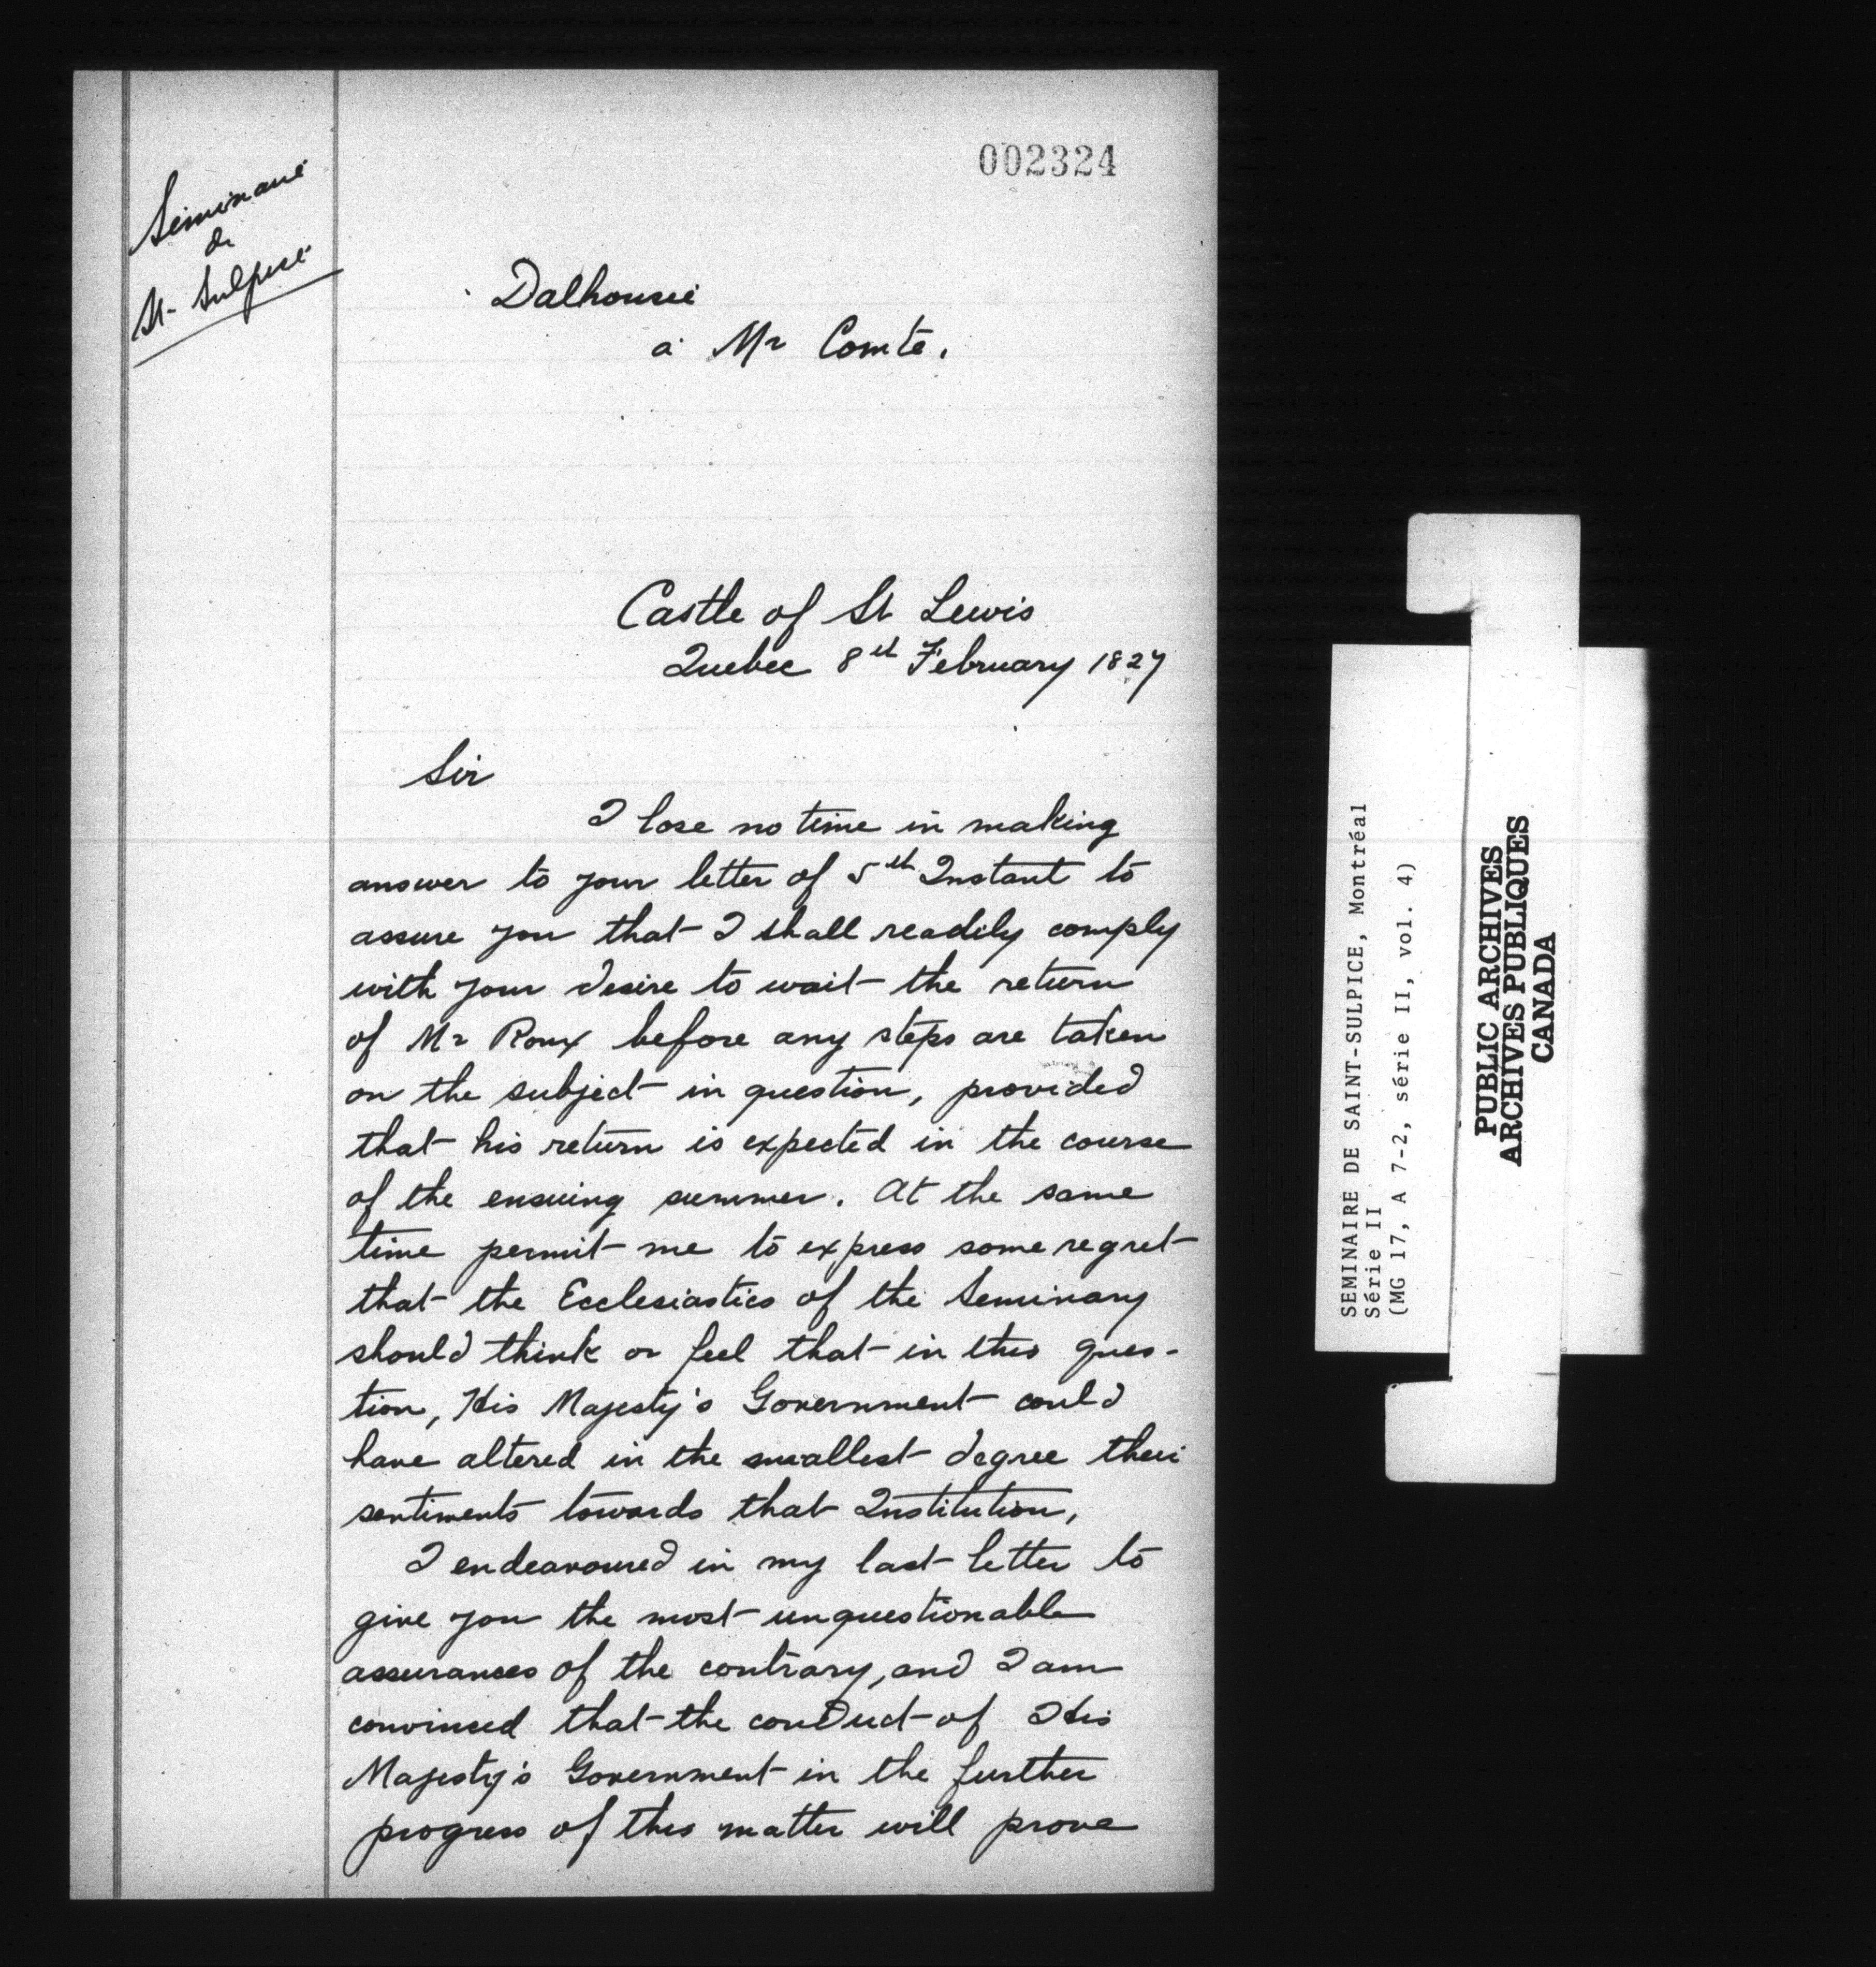 002324
Séminaire
de
St-Sulpice
Dalhousie
à Mr Comte.
Castle of St Lewis
Quebec 8th February 1827
Sir
I lose no time in making
answer to your letter of 5th Instant to
assure you that I shall readily comply
with your desire to wait the return
of Mr Roux before any steps are taken
on the subject in question, provided
that his return is expected in the course
of the ensuing summer. At the same
time permit me to express some regret
that the Ecclesiastics of the Seminary
should think or feel that in this ques-
tion, His Majesty's Government could
have altered in the smallest degree their
sentiments towards that Institution,
I endeavoured in my last letter to
give you the most unquestionable
assurances of the contrary, and I am
convinced that the conduct of His
Majesty's Government in the further
progress of this matter will prove
SEMINAIRE DE SAINT-SULPICE, Montréal
Série II
(MG 17, A 7-2, série II, vol. 4)
PUBLIC ARCHIVES
ARCHIVES PUBLIQUES
CANADA